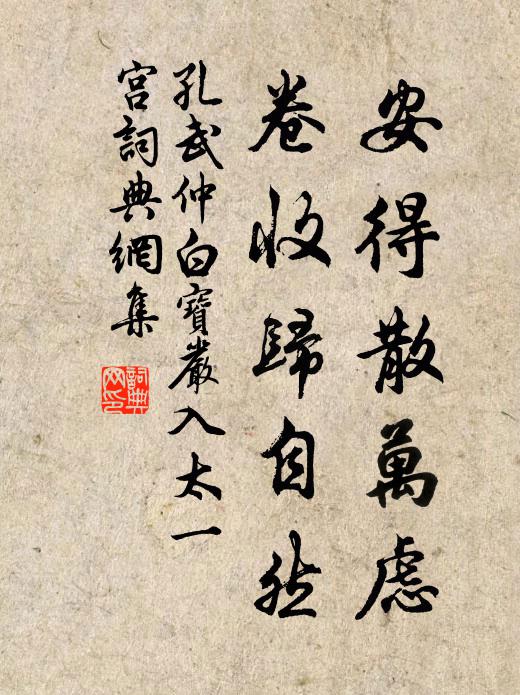 安得散萬慮
卷收歸自然
孔武仲白寶嚴入太一
宮詞典網集
詞典
网印